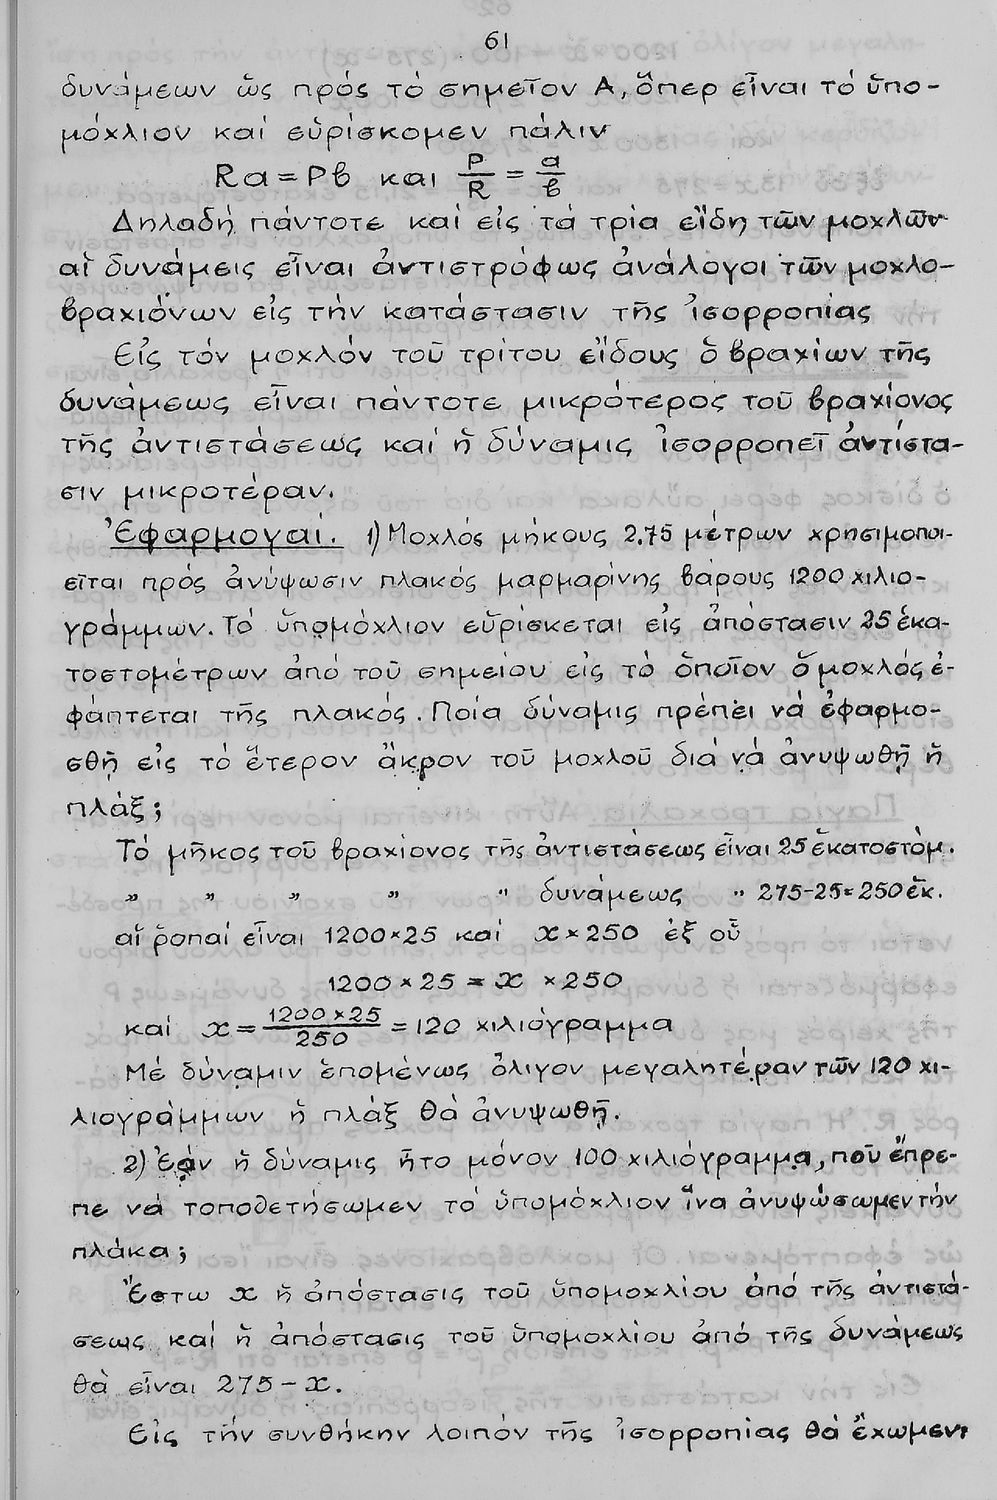 61
δυνάμεων ὡς πρός τό σημεῖον Α, ὅπερ εἶναι τό ὑπο-
μόχλιον καί εὑρίσκομεν πάλιν
Rα = Pβ και P/R = α/β
Δηλαδή πάντοτε καί εἰς τά τρία εἴδη τῶν μοχλῶν
αἱ δυνάμεις εἶναι ἀντιστρόφως ἀνάλογοι τῶν μοχλο-
βραχιόνων εἰς τήν κατάστασιν τῆς ἰσορροπίας
Εἰς τόν μοχλόν τοῦ τρίτου εἴδους ὁ βραχίων τῆς
δυνάμεως εἶναι πάντοτε μικρότερος τοῦ βραχίονος
τῆς ἀντιστάσεως καί ἡ δύναμις ἰσορροπεῖ ἀντίστα-
σιν μικροτέραν.
Ἐφαρμογαί. 1) Μοχλός μήκους 2.75 μέτρων χρησιμοποι-
εῖται πρός ἀνύψωσιν πλακός μαρμαρίνης βάρους 1200 χιλιο-
γράμμων. Τό ὑπομόχλιον εὑρίσκεται εἰς ἀπόστασιν 25 ἑκα-
τοστομέτρων ἀπό τοῦ σημείου εἰς τό ὁποῖον ὁ μοχλός ἐ-
φάπτεται τῆς πλακός. Ποία δύναμις πρέπει νά ἐφαρμο-
σθῇ εἰς τό ἕτερον ἄκρον τοῦ μοχλοῦ διά νά ἀνυψωθῇ ἡ
πλάξ;
Τό μῆκος τοῦ βραχίονος τῆς ἀντιστάσεως εἶναι 25 ἑκατοστόμ.
" " " " " δυνάμεως " 275-25=250 ἑκ.
αἱ ῥοπαί εἶναι 1200×25 καί x×250 ἐξ οὗ
1200 × 25 = x × 250
καί x = 1200×25/250 = 120 χιλιόγραμμα
Μέ δύναμιν ἑπομένως ὀλίγον μεγαλητέραν τῶν 120 χι-
λιογράμμων ἡ πλάξ θά ἀνυψωθῇ.
2) Ἐάν ἡ δύναμις ἦτο μόνον 100 χιλιόγραμμα, ποῦ ἔπρε-
πε νά τοποθετήσωμεν τό ὑπομόχλιον ἵνα ἀνυψώσωμεν τήν
πλάκα;
Ἔστω x ἡ ἀπόστασις τοῦ ὑπομοχλίου ἀπό τῆς ἀντιστά-
σεως καί ἡ ἀπόστασις τοῦ ὑπομοχλίου ἀπό τῆς δυνάμεως
θά εἶναι 275 - x.
Εἰς τήν συνθήκην λοιπόν τῆς ἰσορροπίας θά ἔχωμεν: